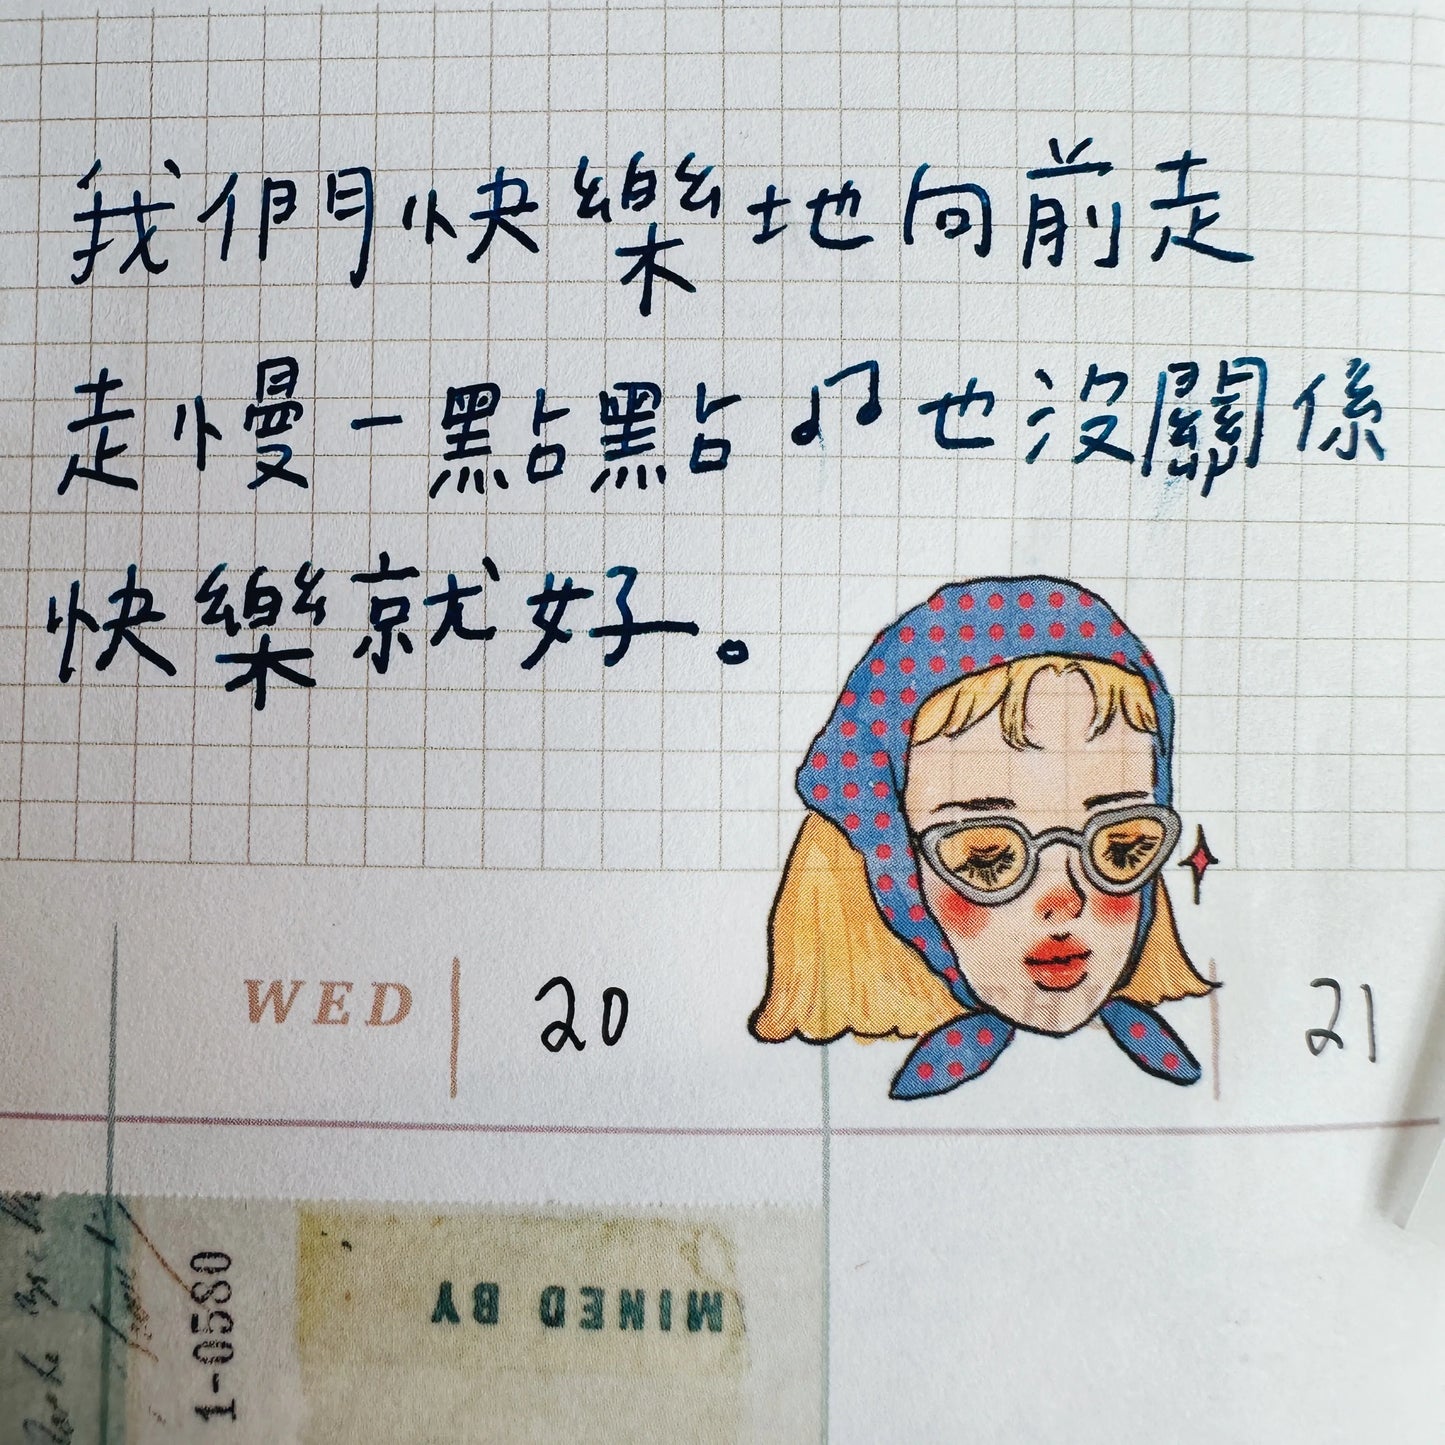 我們快樂地向前走
走慢一點點♫也沒關係
快樂就好。
WED 20
21
1-0580
MINED BY